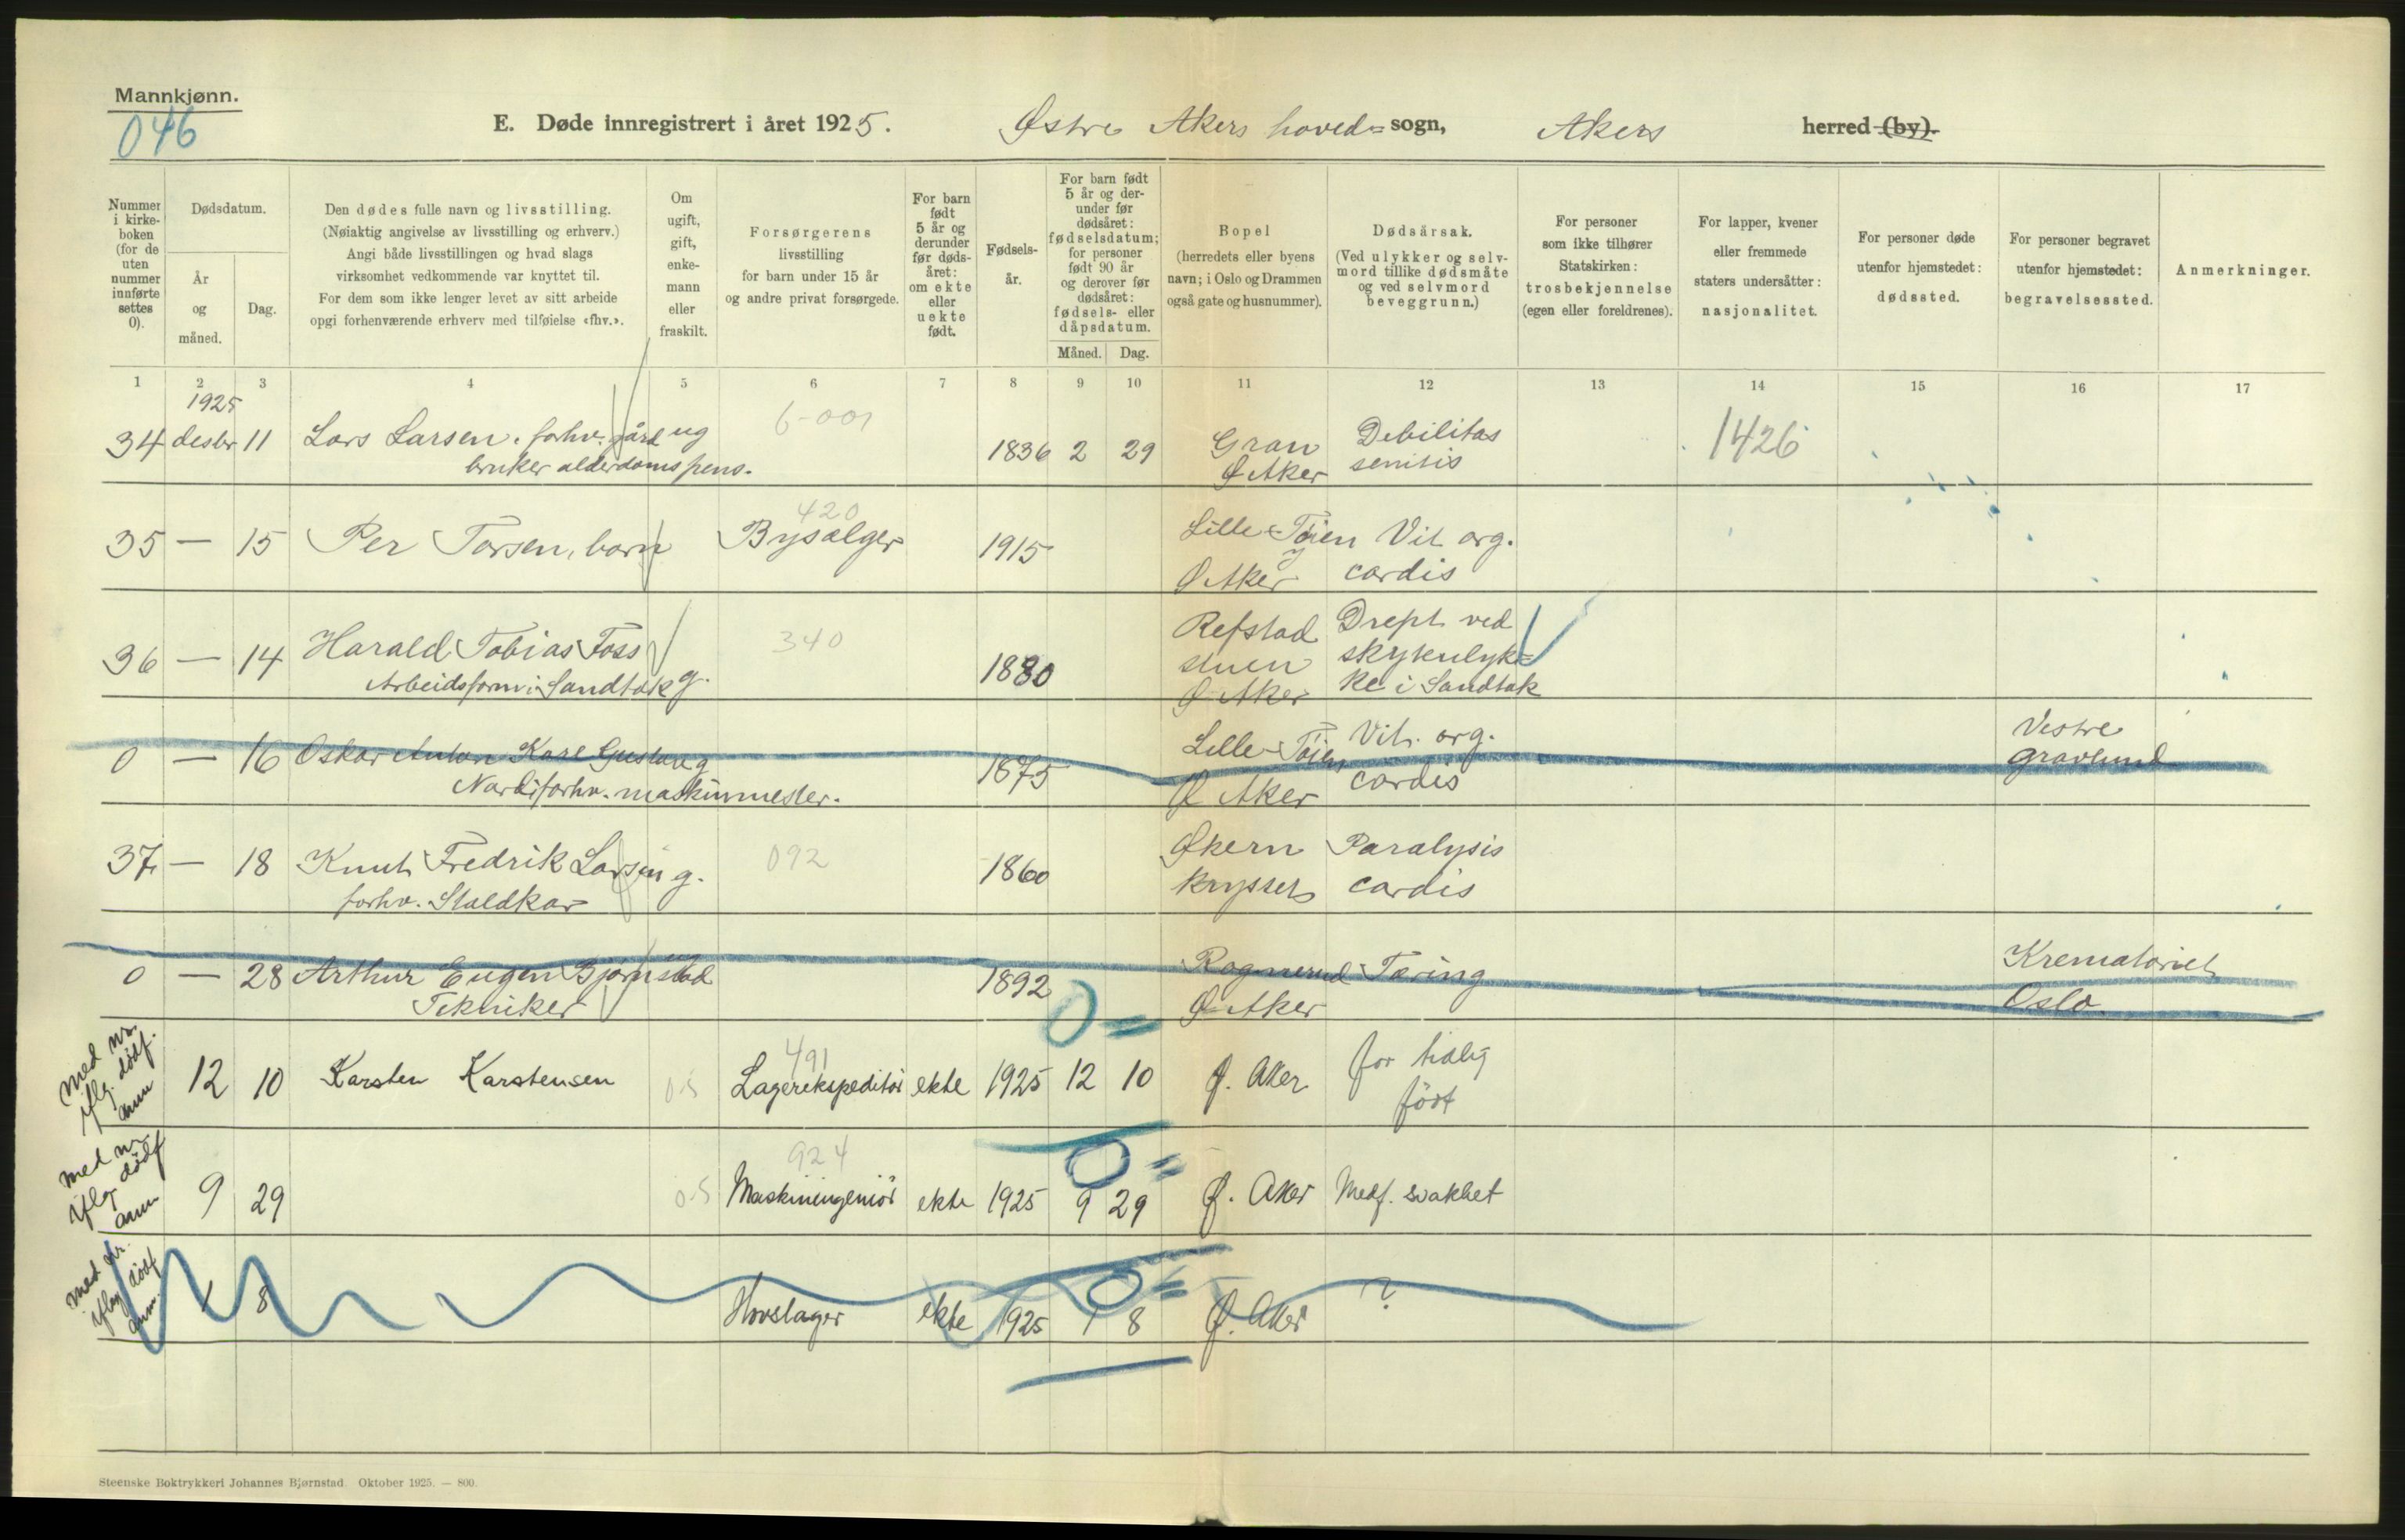 Mannkjønn.
046
E. Døde innregistrert i året 1925. Østre Akers hoved= sogn, Akers herred (by).
Nummer i kirkeboken (for de uten nummer innførte settes 0).
Dødsdatum.
År og måned.
Dag.
Den dødes fulle navn og livsstilling.
(Nøiaktig angivelse av livsstilling og erhverv.)
Angi både livsstillingen og hvad slags
virksomhet vedkommende var knyttet til.
For dem som ikke lenger levet av sitt arbeide
opgi forhenværende erhverv med tilføielse «fhv.».
Om ugift, gift, enkemann eller fraskilt.
Forsørgerens
livsstilling
for barn under 15 år
og andre privat forsørgede.
For barn født 5 år og derunder før dødsåret: om ekte eller uekte født.
Fødselsår.
For barn født 5 år og derunder før dødsåret: fødselsdatum; for personer født 90 år og derover før dødsåret: fødsels- eller dåpsdatum.
Måned. Dag.
Bopel
(herredets eller byens
navn; i Oslo og Drammen
også gate og husnummer).
Dødsårsak.
(Ved ulykker og selvmord tillike dødsmåte
og ved selvmord
beveggrunn.)
For personer
som ikke tilhører
Statskirken:
trosbekjennelse
(egen eller foreldrenes).
For lapper, kvener
eller fremmede
staters undersåtter:
nasjonalitet.
For personer døde
utenfor hjemstedet:
dødssted.
For personer begravet
utenfor hjemstedet:
begravelsessted.
Anmerkninger.
1 2 3 4 5 6 7 8 9 10 11 12 13 14 15 16 17
1925
34 desbr 11 Lars Larsen, forhv. gård ug 6-001 1836 2 29 Gran Debilitas 1426
bruker alderdomspens. Ø Aker senilis
35 — 15 Per Torsen, barn 420 Byselger 1915 Lille-Tøien Vit. org.
Ø Aker cordis
36 — 14 Harald Tobias Foss 340 1880 Refstad Drept ved
Arbeidsform. i Sandtak g. stuen skytulyk=
Ø Aker ke i Sandtak
0 — 16 Oskar Anton Karl Gustav g 1875 Lille-Tøien Vit. org. Vestre
Nardi forhv. maskinmester. Ø Aker cordis gravlund
37 — 18 Knut Fredrik Larsen g. 092 1860 Økern Paralysis
forhv. Staldkar krysset cordis
0 — 28 Arthur Eugen Bjørnstad ug 1892 Rognerud Tæring Krematoriet
Tekniker Ø Aker Oslo
Med nr. iflg. dødf. anm 12 10 Karsten Karstensen 0-5 491 Lagerekspeditør ekte 1925 12 10 Ø. Aker for tidlig
født
0 =
Med nr. iflg. dødf anm 9 29 0-5 924 Maskiningeniør ekte 1925 9 29 Ø. Aker Medf. svakhet
0 =
Med nr. iflg dødf anm. 1 8 Hovslager ekte 1925 1 8 Ø. Aker ?
0 =
Steenske Boktrykkeri Johannes Bjørnstad. Oktober 1925. — 800.